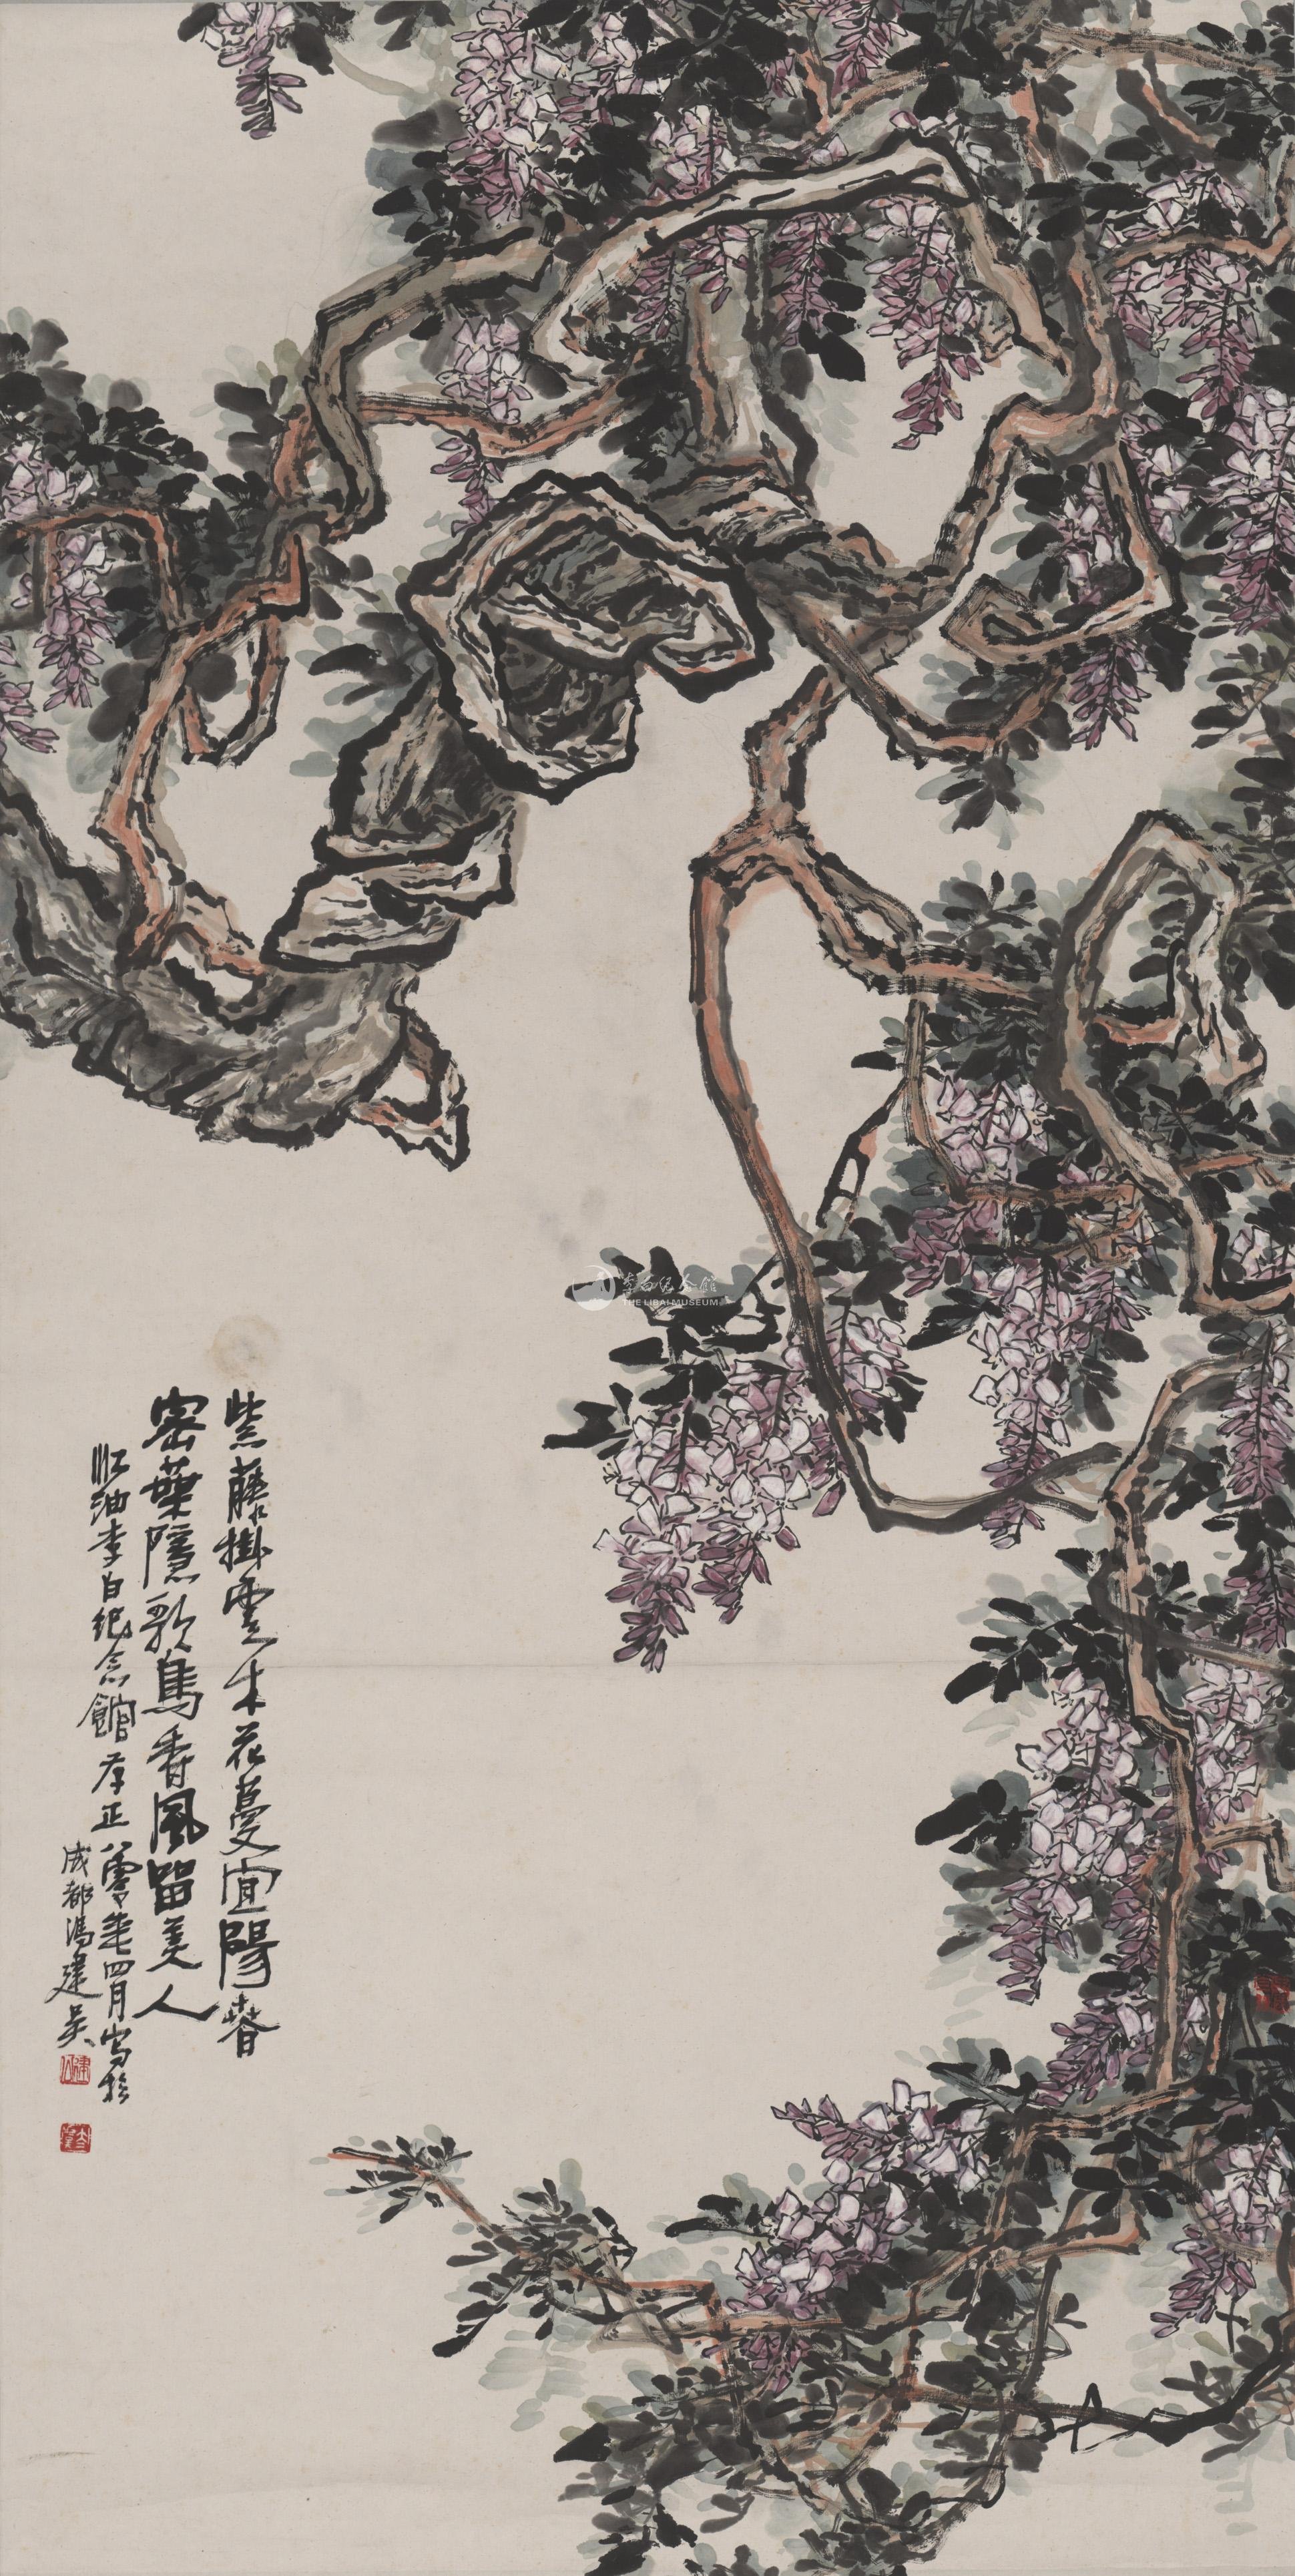 紫藤掛雲木花蔓宜陽春
密葉隱歌鳥香風留美人
江油李白纪念館存正八零年四月写於
成都馮建吴
李白纪念館
THE LIBAI MUSEUM